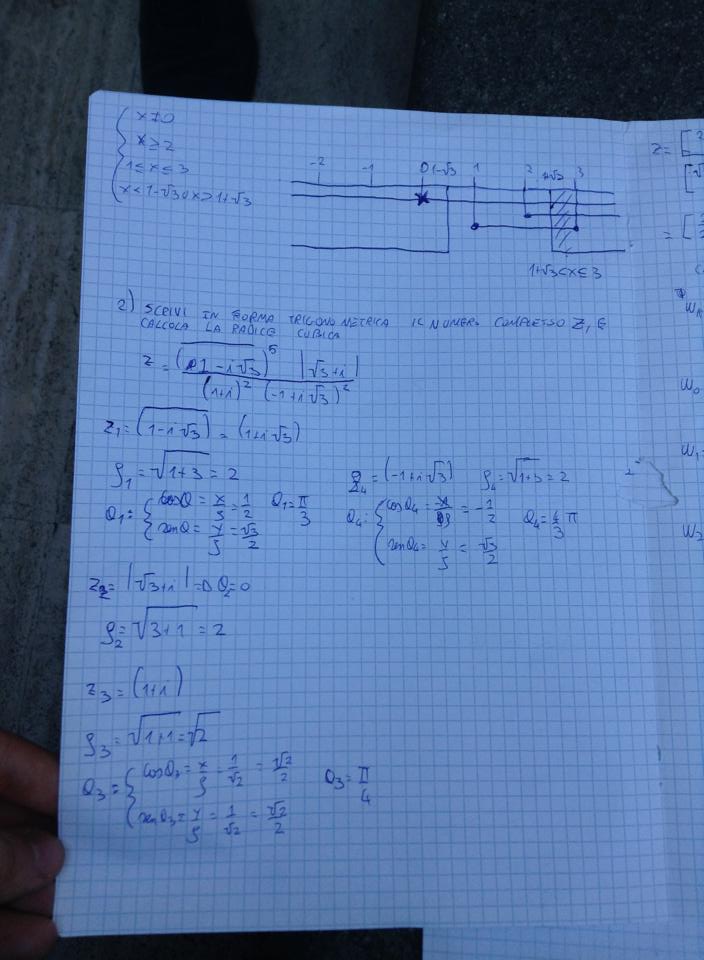 x ≠ 0
x ≥ 2
1 ≤ x ≤ 3
x < 1-√3 o x > 1+√3
-2 -1 0 1-√3 1 2 1+√3 3
1+√3 < x ≤ 3
2) SCRIVI IN FORMA TRIGONOMETRICA IL NUMERO COMPLESSO Z, E
CALCOLA LA RADICE CUBICA
Z = (1-i√3)^5 |√3+i|
(1+i)^2 (-1+i√3)^2
Z1 = (1-i√3) = (1+i√3)
ρ1 = √1+3 = 2
Z4 = (-1+i√3) ρ4 = √1+3 = 2
θ1 = { cosθ = x/ρ = 1/2 θ1 = π/3
senθ = y/ρ = √3/2
θ4 = { cosθ4 = x/ρ = -1/2 θ4 = 4/3 π
senθ4 = y/ρ = √3/2
Z2 = |√3+i| => θ2 = 0
ρ2 = √3+1 = 2
Z3 = (1+i)
ρ3 = √1+1 = √2
θ3 = { cosθ3 = x/ρ = 1/√2 = √2/2 θ3 = π/4
senθ3 = y/ρ = 1/√2 = √2/2
Z = [
=
W0
W1
W2